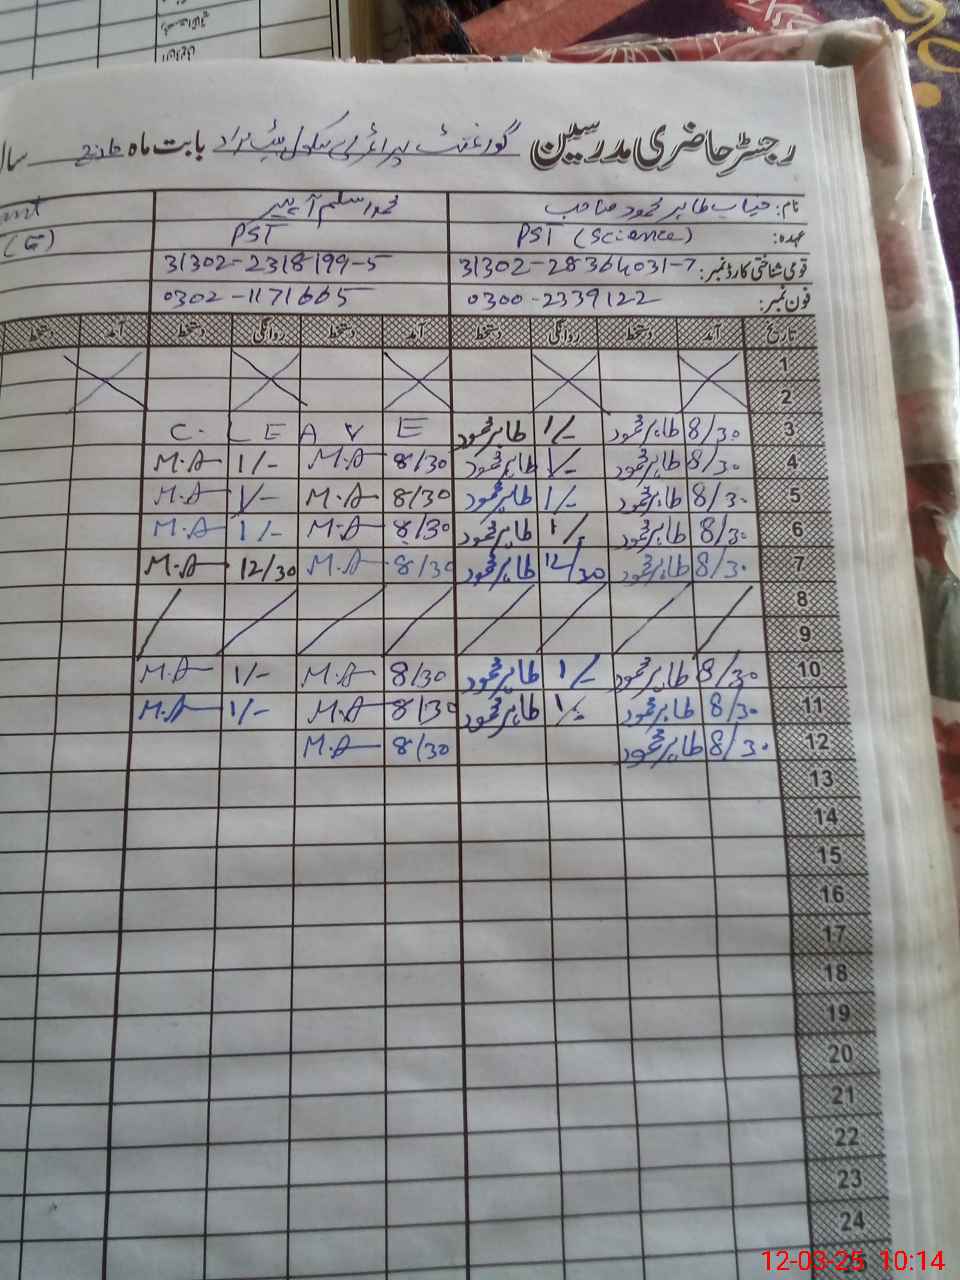 رجسٹر حاضری مدرسین گورنمنٹ پرائمری سکول بابت ماہ مارچ سال
نام: جناب طاہر محمود صاحب محمد اسلم
عہدہ: PST (Science) PST
قومی شناختی کارڈ نمبر: 31302-28364031-7 31302-2318199-5
فون نمبر: 0300-2339122 0302-1171665
تاریخ آمد دستخط روانگی دستخط آمد دستخط روانگی دستخط آمد دستخط
1
2
3 8/30 طاہر محمود 1/- طاہر محمود C. LEAVE
4 8/30 طاہر محمود 1/- طاہر محمود 8/30 M.A 1/- M.A
5 8/30 طاہر محمود 1/- طاہر محمود 8/30 M.A 1/- M.A
6 8/30 طاہر محمود 1/- طاہر محمود 8/30 M.A 1/- M.A
7 8/30 طاہر محمود 12/30 طاہر محمود 8/30 M.A 12/30 M.A
8
9
10 8/30 طاہر محمود 1/- طاہر محمود 8/30 M.A 1/- M.A
11 8/30 طاہر محمود 1/- طاہر محمود 8/30 M.A 1/- M.A
12 8/30 طاہر محمود 8/30 M.A
13
14
15
16
17
18
19
20
21
22
23
24
12-03-25 10:14